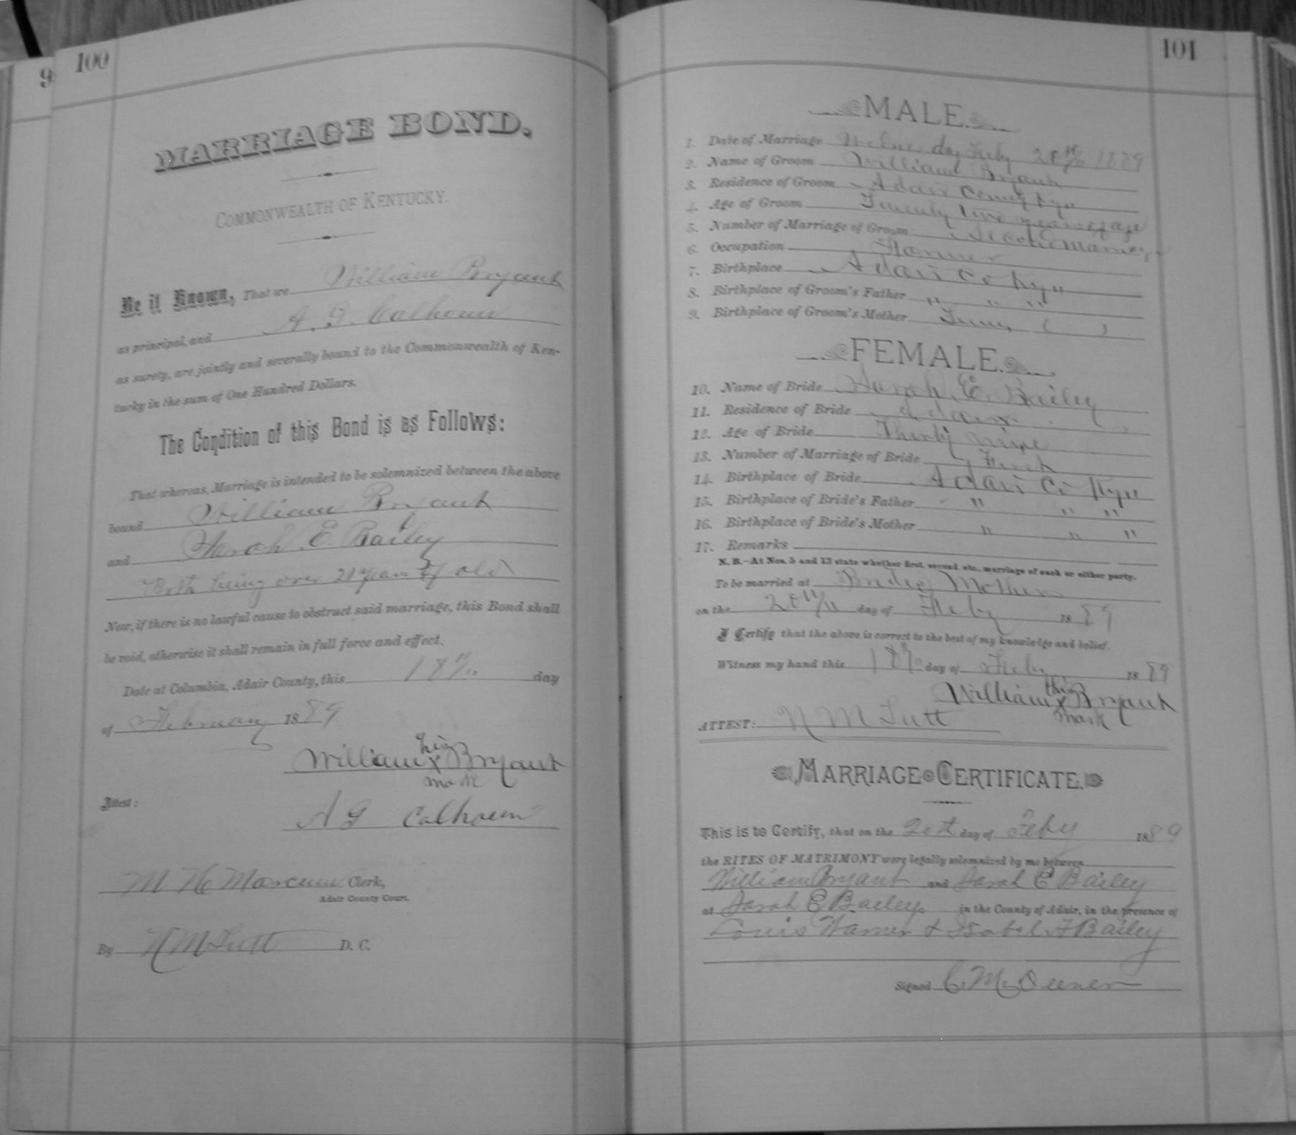 9
100
MARRIAGE BOND.
COMMONWEALTH OF KENTUCKY.
Be it Known, That we William Bryant
as principal, and A. G. Calhoun
as surety, are jointly and severally bound to the Commonwealth of Ken-
tucky in the sum of One Hundred Dollars.
The Condition of this Bond is as Follows:
That whereas, Marriage is intended to be solemnized between the above
bound William Bryant
and Sarah E Bailey
Both being over 21 years of old
Now, if there is no lawful cause to obstruct said marriage, this Bond shall
be void, otherwise it shall remain in full force and effect.
Date at Columbia, Adair County, this 18th day
of February 1889
William his x mark Bryant
Attest:
A G Calhoun
M H Marcum Clerk,
Adair County Court.
By N M Tutt D. C.
101
MALE.
1. Date of Marriage Wednesday Feby 20th 1889
2. Name of Groom William Bryant
3. Residence of Groom Adair County Ky
4. Age of Groom Twenty years of age
5. Number of Marriage of Groom Second marriage
6. Occupation Farmer
7. Birthplace Adair Co Ky
8. Birthplace of Groom's Father " " "
9. Birthplace of Groom's Mother Tenn ( )
FEMALE.
10. Name of Bride Sarah E. Bailey
11. Residence of Bride Adair
12. Age of Bride Thirty nine
13. Number of Marriage of Bride First
14. Birthplace of Bride Adair Co Ky
15. Birthplace of Bride's Father " " "
16. Birthplace of Bride's Mother " " "
17. Remarks
N. B.—At Nos. 5 and 13 state whether first, second, etc., marriage of each or either party.
To be married at Brides Mothers
on the 20th day of Feby 1889
I Certify that the above is correct to the best of my knowledge and belief.
Witness my hand this 18th day of Feby 1889
William his x mark Bryant
ATTEST: N M Tutt
MARRIAGE CERTIFICATE.
This is to Certify, that on the 20th day of Feby 1889
the RITES OF MATRIMONY were legally solemnized by me between
William Bryant and Sarah E Bailey
at Sarah E Baileys in the County of Adair, in the presence of
Louis Warner & Isabel F Bailey
Signed C. M. Deener